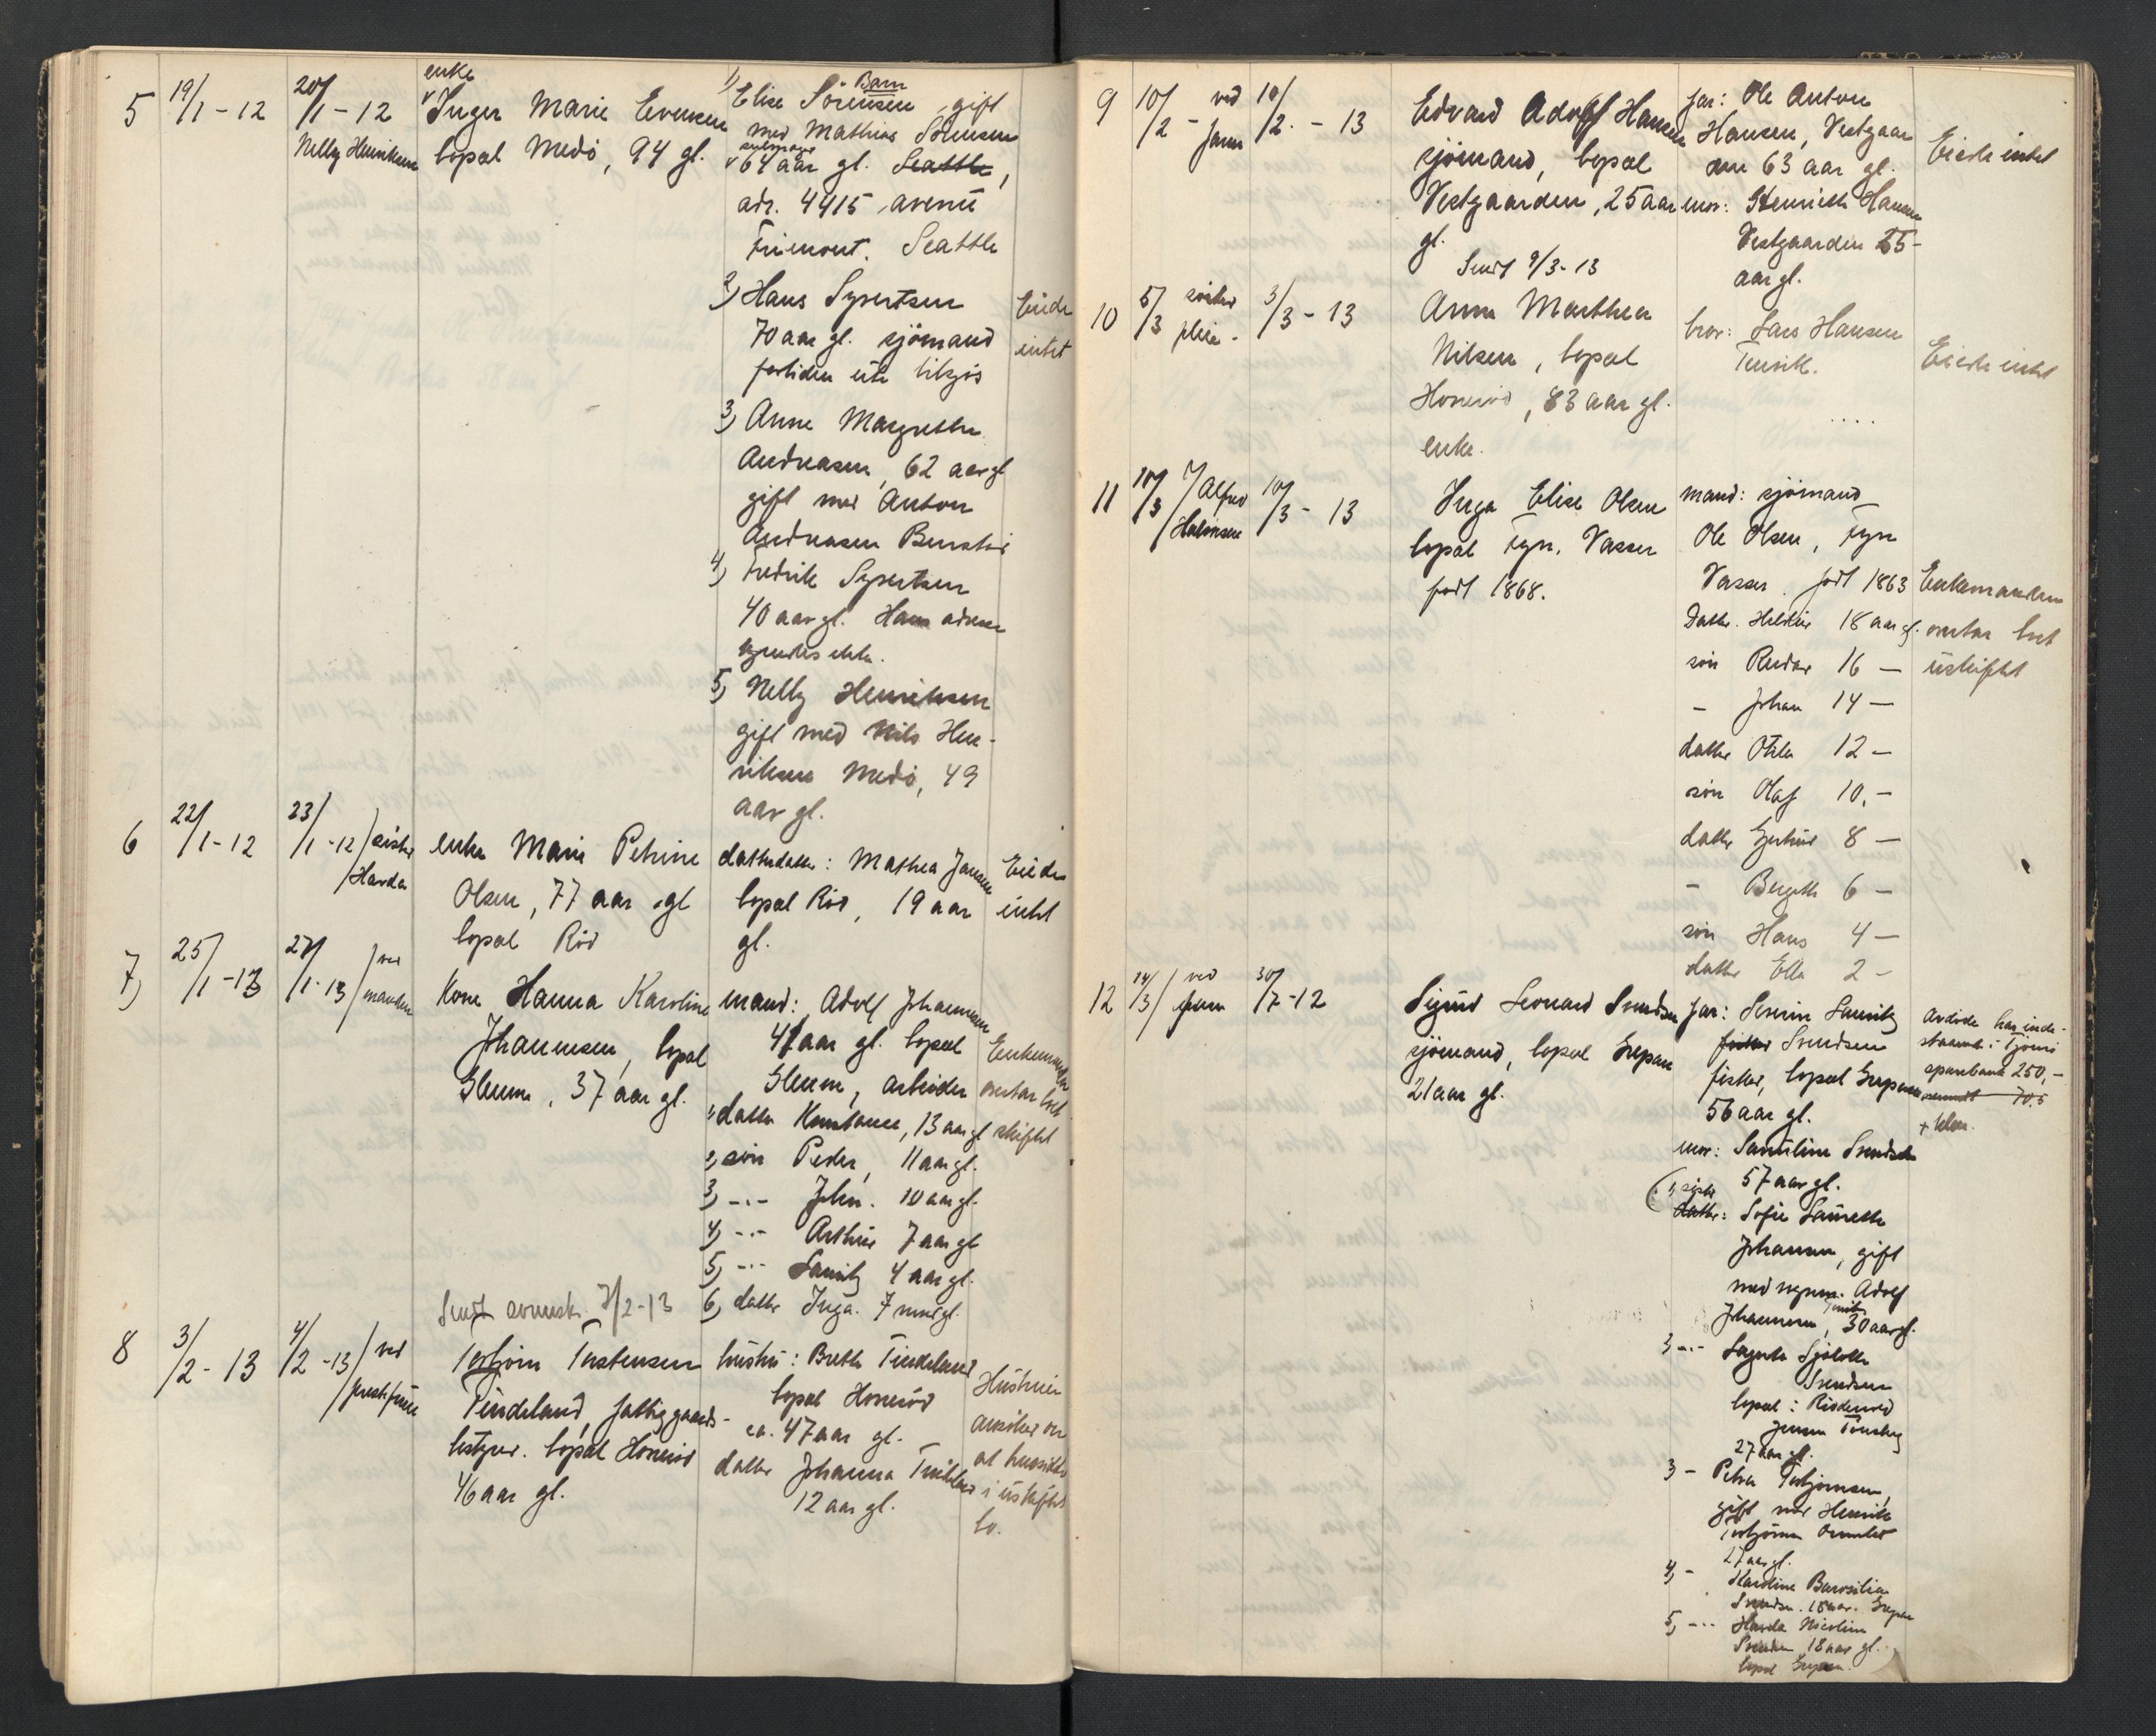 5 19/1-12 20/1-12
Nelly Henriksen
enke
Inger Marie Evensen
bopæl Medö, 94 gl.
Barn
1) Elise Sörensen, gift
med Mathias Sörensen
64 aar gl. Seattle,
adr. 4415 avenü
Seattle
2) Hans Syvertsen
70 aar gl. sjömand
fortiden ute tilsjös
3) Anne Margrethe
Andreasen, 62 aar gl
gift med Anton
Andreasen
4) Fredrik Syvertsen
40 aar gl. Hans adresse
kjendes ikke.
5) Nelly Henriksen
gift med Nils Hen-
riksen Medö, 49
aar gl.
Eiede
intet
6 22/1-12 23/1-12 / söster
/ Harda
enke Marie Petrine
Olsen, 77 aar gl
bopæl Röd
datterdatter: Mathea Jansen
bopæl Röd, 19 aar
gl.
Eiede
intet
7) 25/1-13 27/1-13 / ved
/ manden
Kone Hanna Karoline
Johannessen, bopæl
Glenne, 37 aar gl.
mand: Adolf Johannessen
41 aar gl. bopæl
Glenne, arbeider
1) datter Konstance, 13 aar gl
2) sön Peder, 11 aar gl.
3) -..- John. 10 aar gl.
4) -..- Arthur 7 aar gl
5) -..- Lauritz 4 aar gl.
6) datter Inga. 7 mnd gl.
Enkemanden
ønsker
skiftet
Sendt 7/2-13
8 3/2-13 4/2-13 / ved
Torbjörn Torstensen
Tindeland, fattiggaards-
bestyrer. bopæl Honeröd
46 aar gl.
hustru: Berthe Tindeland
bopæl Honeröd
ca. 47 aar gl.
datter Johanna Tindeland
12 aar gl.
Hustruen
ansöker om
at hensidde
i uskiftet
bo.
9 10/2 - ved
faren
10/2. - 13
Edvard Adolf Hansen
sjömand, bopæl
Vestgaarden, 25 aar
gl.
Sendt 9/3-13
far: Ole Anton
Hansen, Vestgaar
den 63 aar gl.
mor: Henriette Hansen
Vestgaarden 55-
aar gl.
Eiede intet
10 5/3 söster
pleie-
3/3-13
Anne Marthea
Nilsen, bopæl
Honeröd, 83 aar gl.
enke.
bror: Lars Hansen
Eiede intet
11 10/3 / Alfred
10/3-13
Inga Elise Olsen
bopæl Fyn. Vasser
født 1868.
mand: sjömand
Ole Olsen, Fyn
Vasser. født 1863
Datter. Helvine 18 aar gl.
sön Reidar 16 —
- Johan 14 —
datter Otilie 12 —
sön Olaf 10. —
datter 8 —
- Bergithe 6 —
sön Hans 4 —
datter Ella 2 -
Enkemanden
ønsker boet
uskiftet
12 14/3 / ved
faren
30/7-12
Sigurd Leonard Svendsen
sjömand, bopæl Grepan
21 aar gl.
far: Severin Lauritz
Svendsen
fisker, bopæl Grepan
56 aar gl.
mor: Samuline Svendsen
57 aar gl.
1) söster
datter: Sofie Laurette
Johansen, gift
med Adolf
Johannessen, 30 aar gl.
3 -..-
Svendsen
bopæl:
Jensen Tönsberg
27 aar gl.
3 - Petra Torbjörnsen,
gift med Henrik
Torbjörnsen
27 aar gl.
4) - Karoline
Svendsen. 18 aar. Grepan
5) -..- Harda Nicoline
Svendsen 18 aar gl.
bopæl Grepan.
Avdöde har inde-
staaende i Tjömö
sparebank 250,-
70,5
+ klær.